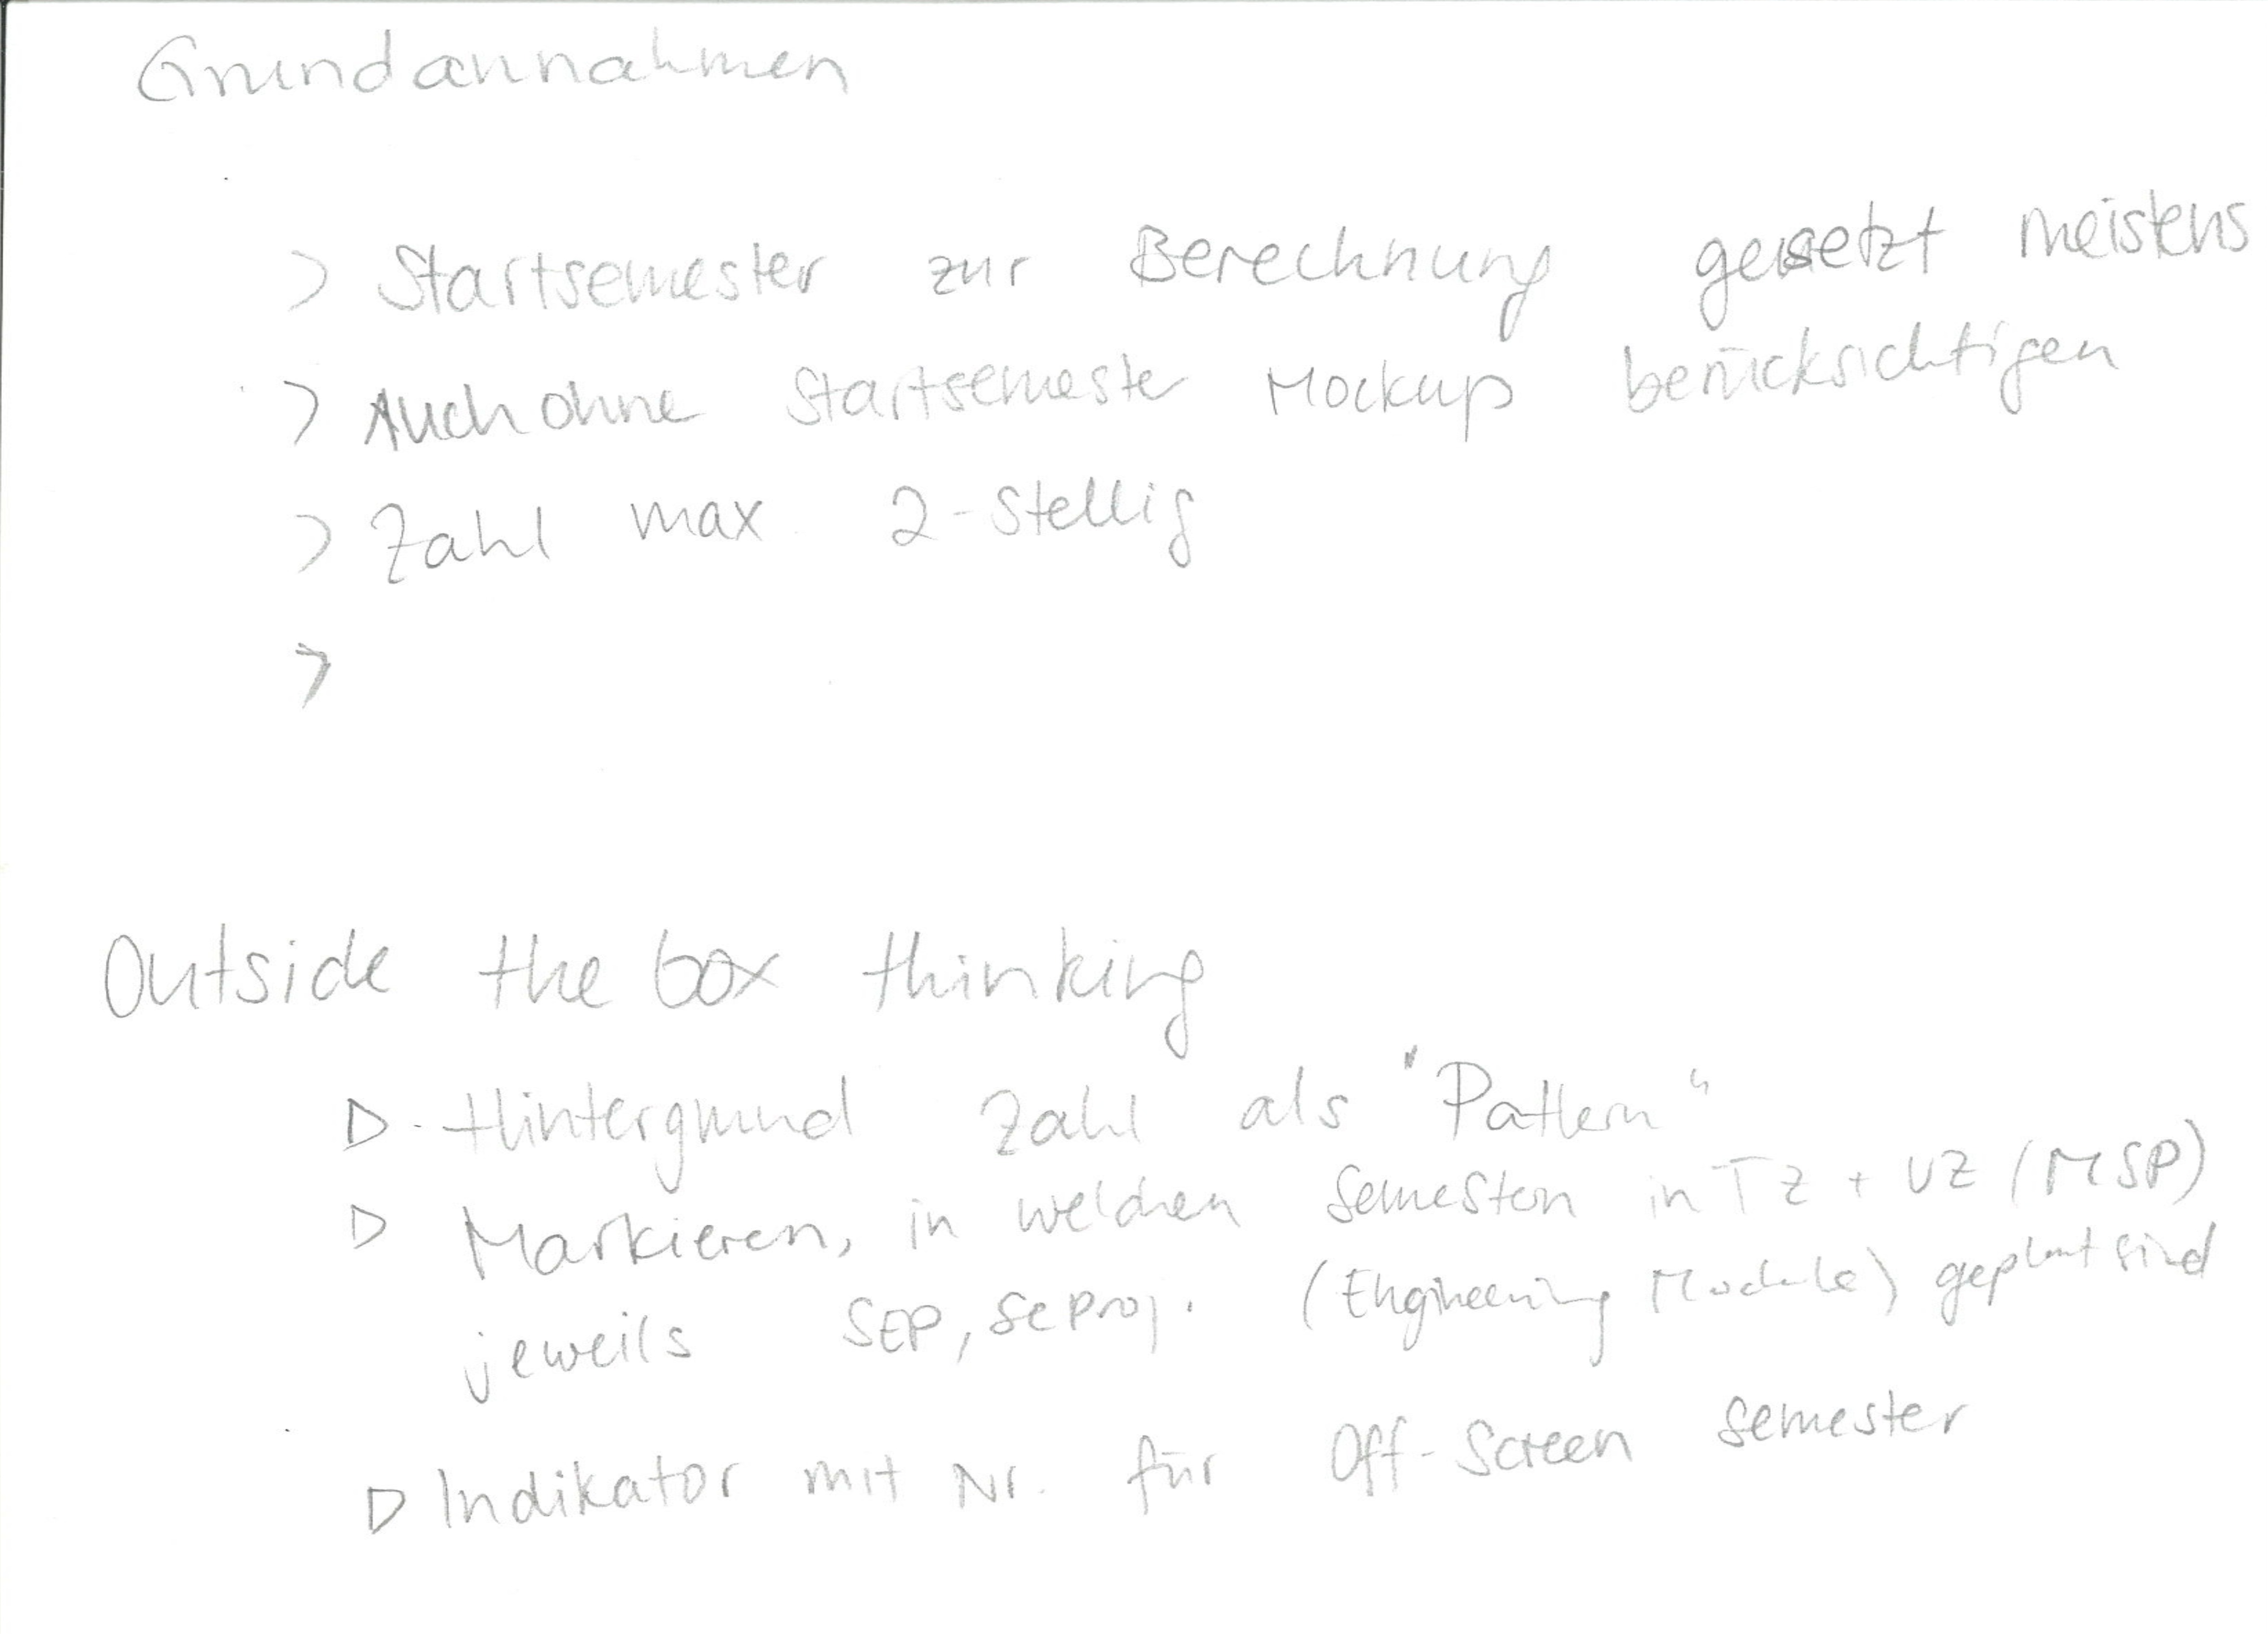 Grundannahmen
> Startsemester zur Berechnung gesetzt meistens
> Auch ohne Startsemester Mockup berücksichtigen
> Zahl max 2-stellig
>
Outside the box thinking
▷ Hintergrund Zahl als "Pattern"
▷ Markieren, in welchen Semestern in TZ + VZ (MSP)
jeweils SEP, SEProj. (Engineering Module) geplant sind
▷ Indikator mit Nr. für Off-Screen Semester